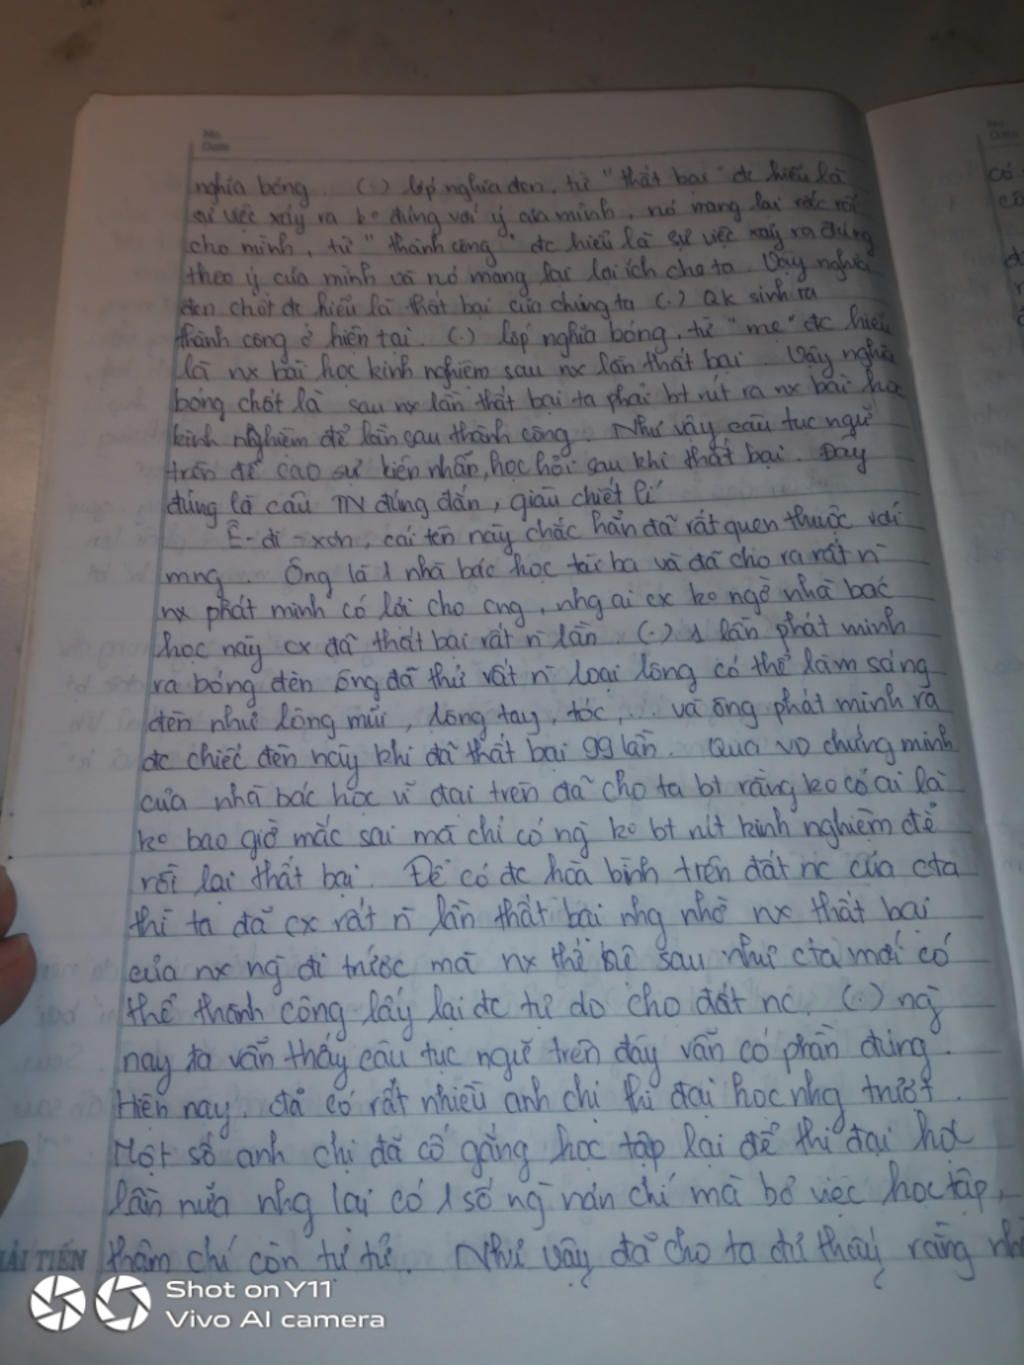 No.
Date
nghĩa bóng. (.) lớp nghĩa đen, từ "thất bại" đc hiểu là
sự việc xảy ra ko đúng với ý của mình, nó mang lại rắc rối
cho mình, từ "thành công" đc hiểu là sự việc xảy ra đúng
theo ý của mình và nó mang lại lợi ích cho ta. Vậy nghĩa
đen chốt đc hiểu là thất bại của chúng ta (.) qk sinh ra
thành công ở hiện tại. (.) lớp nghĩa bóng, từ "mẹ" đc hiểu
là nx bài học kinh nghiệm sau nx lần thất bại. Vậy nghĩa
bóng chốt là sau nx lần thất bại ta phải bt rút ra nx bài học
kinh nghiệm để lần sau thành công. Như vậy câu tục ngữ
trên đề cao sự kiên nhẫn, học hỏi sau khi thất bại. Đay
đúng là câu TN đúng đắn, giàu chiết lí
Ê-đi-xơn, cái tên này chắc hẳn đã rất quen thuộc với
mng. Ông là 1 nhà bác học tài ba và đã cho ra rất n̄
nx phát minh có lợi cho cng, nhg ai cx ko ngờ nhà bác
học này cx đã thất bại rất n̄ lần. (.) 1 lần phát minh
ra bóng đèn ông đã thử rất n̄ loại lông có thể làm sáng
đèn như lông mũi, lông tay, tóc,... và ông phát minh ra
đc chiếc đèn này khi đã thất bại 99 lần. Qua VD chứng minh
của nhà bác học vĩ đại trên đã cho ta bt rằng ko có ai là
ko bao giờ mắc sai mà chỉ có ng̀ ko bt rút kinh nghiệm để
rồi lại thất bại. Để có đc hòa bình trên đất nc của cta
thì ta đã cx rất n̄ lần thất bại nhg nhờ nx thất bại
của nx ng̀ đi trước mà nx thế hệ sau như cta mới có
thể thành công lấy lại đc tự do cho đất nc. (.) ng̀
nay ta vẫn thấy câu tục ngữ trên đây vẫn có phần đúng.
Hiện nay, đã có rất nhiều anh chị thi đại học nhg trượt.
Một số anh chị đã cố gắng học tập lại để thi đại học
lần nữa nhg lại có 1 số ng̀ nản chí mà bỏ việc học tập,
thậm chí còn tự tử. Như vậy đã cho ta thấy rằng
HẢI TIẾN
Shot on Y11
Vivo AI camera